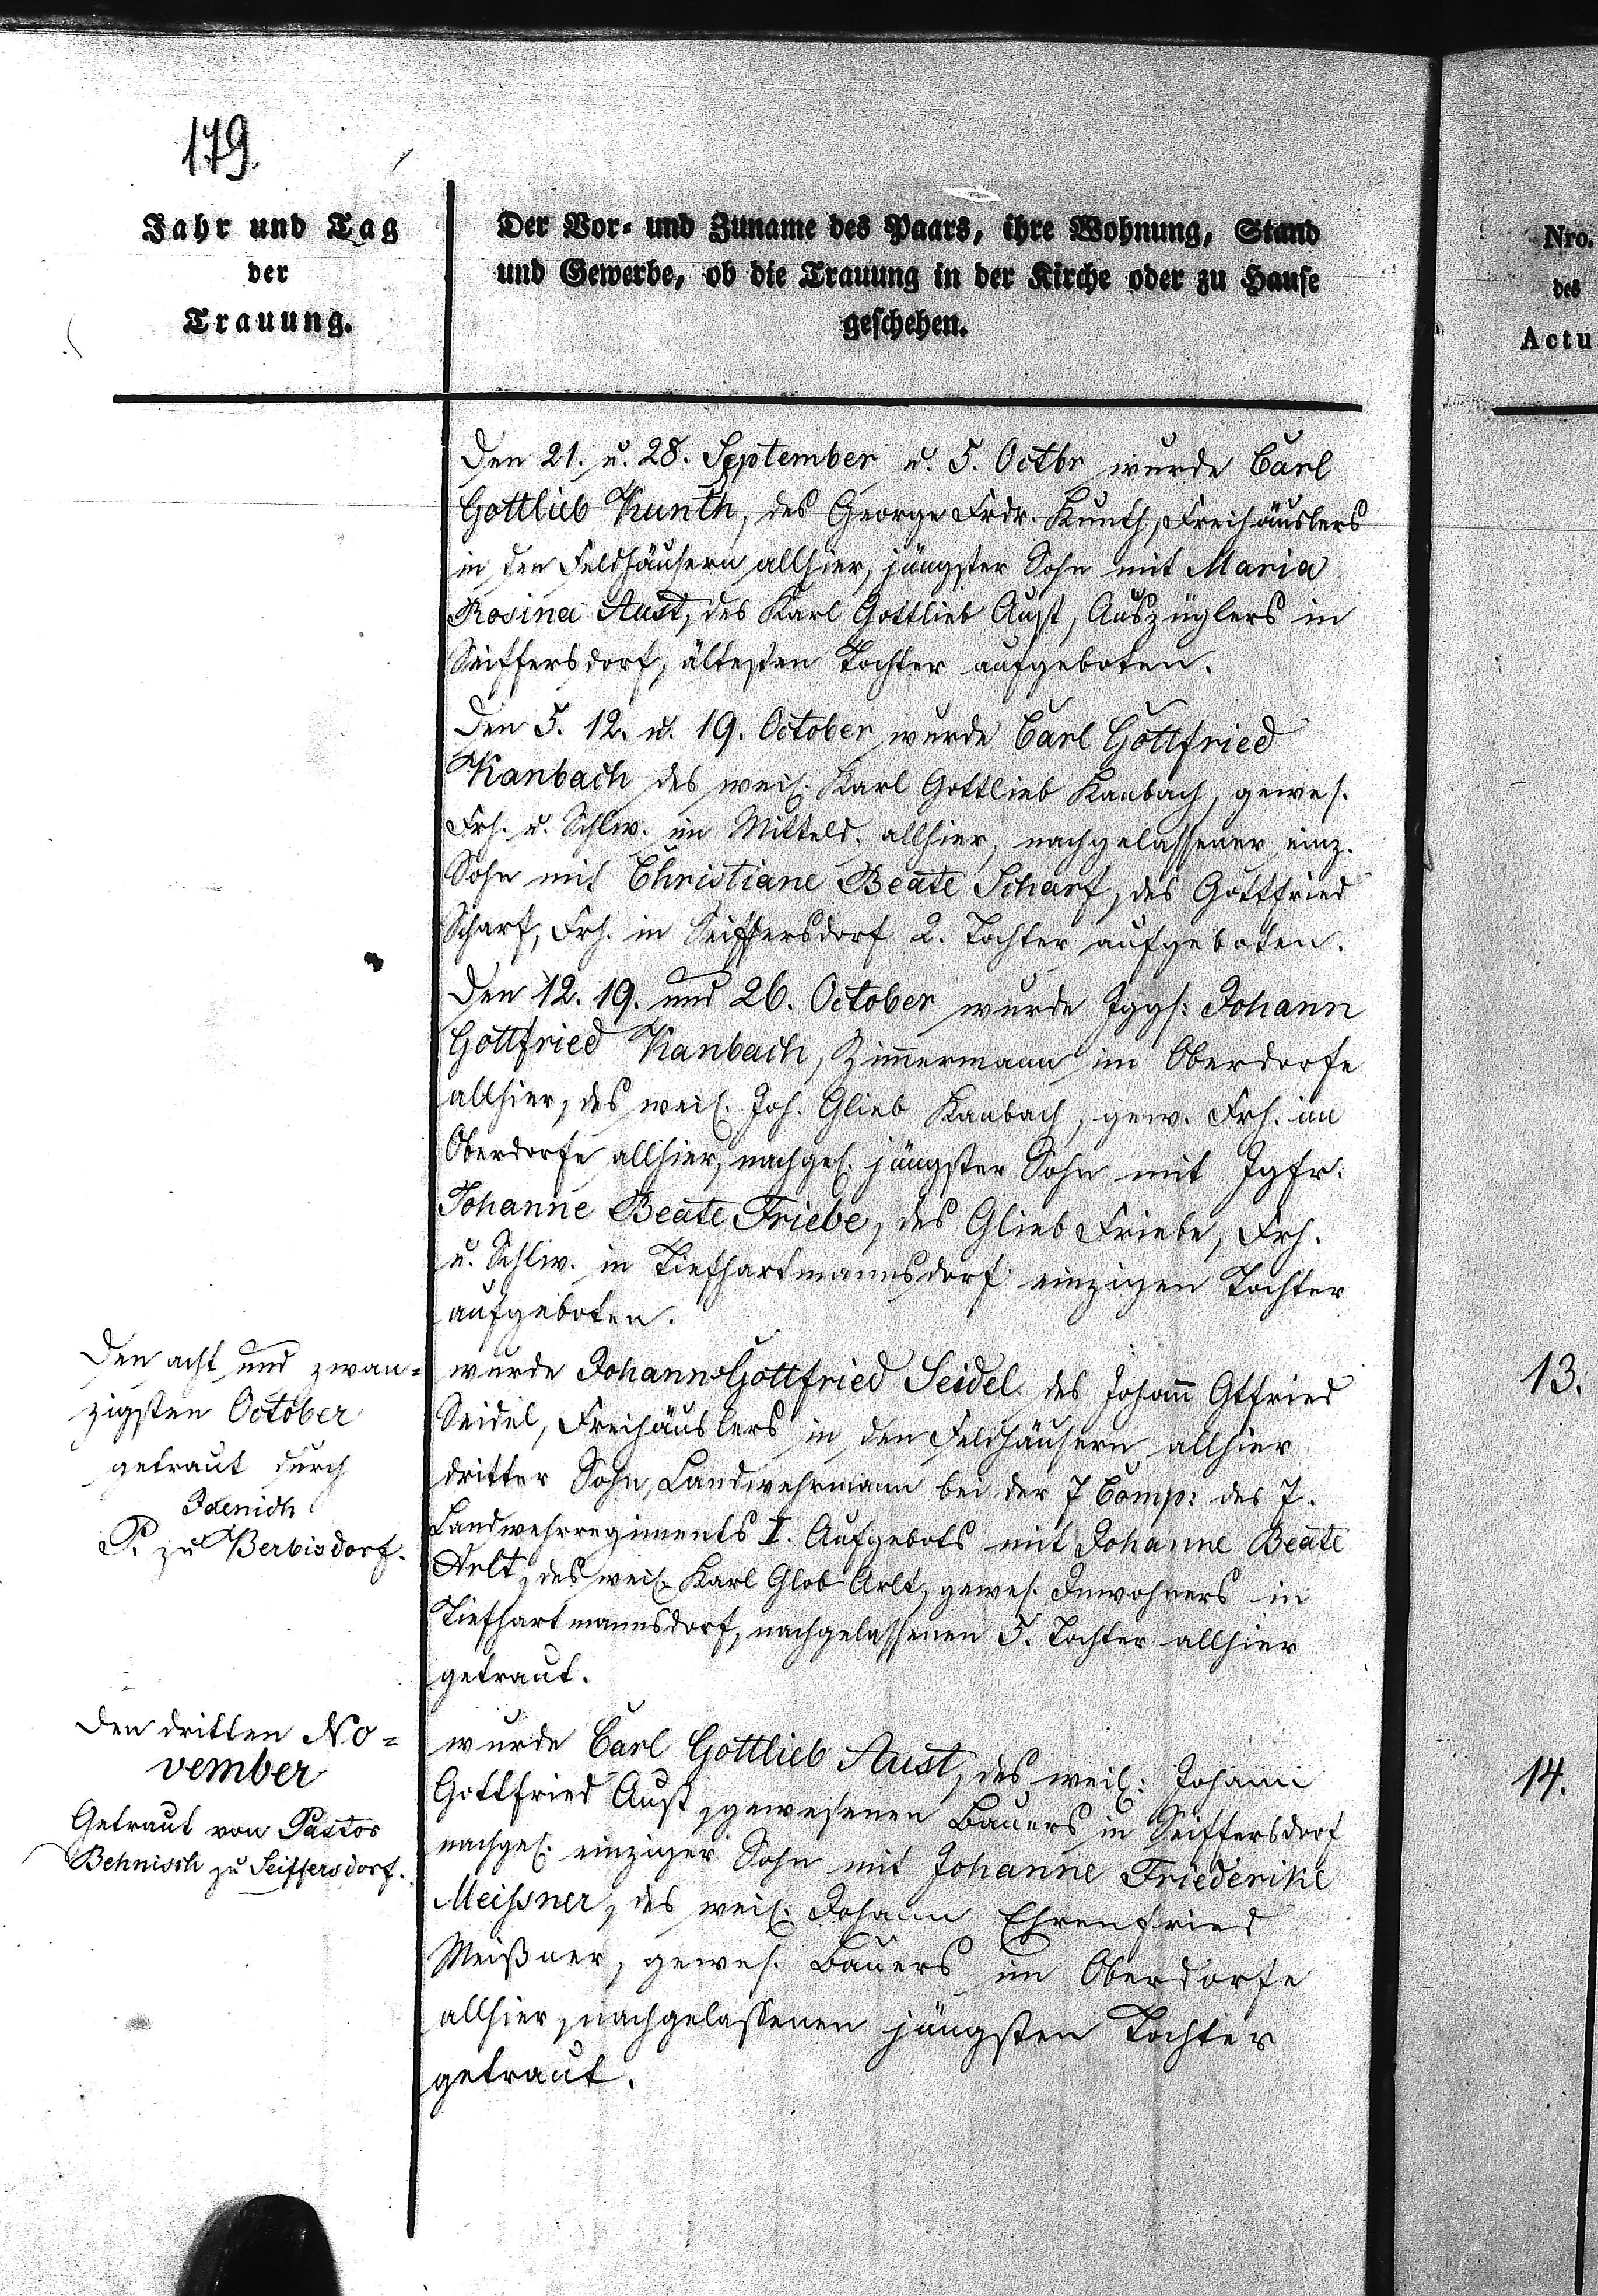 179.
Jahr und Tag
der
Trauung.
Der Vor- und Zuname des Paars, ihre Wohnung, Stand
und Gewerbe, ob die Trauung in der Kirche oder zu Hause
geschehen.
Nro.
des
Actu
Den 21. u. 28. September u. 5. Octbr wurde Carl
Gottlieb Kunth, des George Frdr. Kunth, Freihäuslers
in den Feldhäusern allhier, jüngster Sohn mit Maria
Rosina Aust, des Karl Gottlieb Aust, Auszüglers in
Seiffersdorf, ältesten Tochter aufgeboten.
Den 5. 12. u. 19. October wurde Carl Gottfried
Kanbach des weil. Karl Gottlieb Kanbach, gewes.
Frh. u. Schlw. im Mitteld. allhier, nachgelassener einz.
Sohn mit Christiane Beate Scharf, des Gottfried
Scharf, Frh. in Seiffersdorf 2. Tochter aufgeboten.
Den 12. 19. und 26. October wurde Jggs: Johann
Gottfried Kanbach, Zimmermann im Oberdorfe
allhier, des weil. Joh. Glieb Kanbach, gew. Frh. im
Oberdorfe allhier, nachgel. jüngster Sohn mit Jgfr.
Johanne Beate Friebe, des Glieb Friebe, Frh.
u. Schlw. in Tiefhartmannsdorf einzigen Tochter
aufgeboten.
Den acht und zwan=
zigsten October
getraut durch
Jaenich
P. zu Berbisdorf.
wurde Johann Gottfried Seidel des Johann Gtfried
Seidel, Freihäuslers in den Feldhäusern allhier
dritter Sohn, Landwehrmann bei der 7 Comp: des 7.
Landwehrregiments I. Aufgebots mit Johanne Beate
Arlt, des weil. Karl Glob Arlt, gewes. Inwohners in
Tiefhartmannsdorf, nachgelassenen 5. Tochter allhier
getraut.
13.
Den dritten No=
vember
Getraut von Pastor
Behnisch zu Seiffersdorf.
wurde Carl Gottlieb Aust, des weil: Johann
Gottfried Aust, gewesenen Bauers in Seiffersdorf
nachgel: einziger Sohn mit Johanne Friederike
Meißner, des weil: Johann Ehrenfried
Meißner, gewes. Bauers im Oberdorfe
allhier, nachgelassenen jüngsten Tochter
getraut.
14.